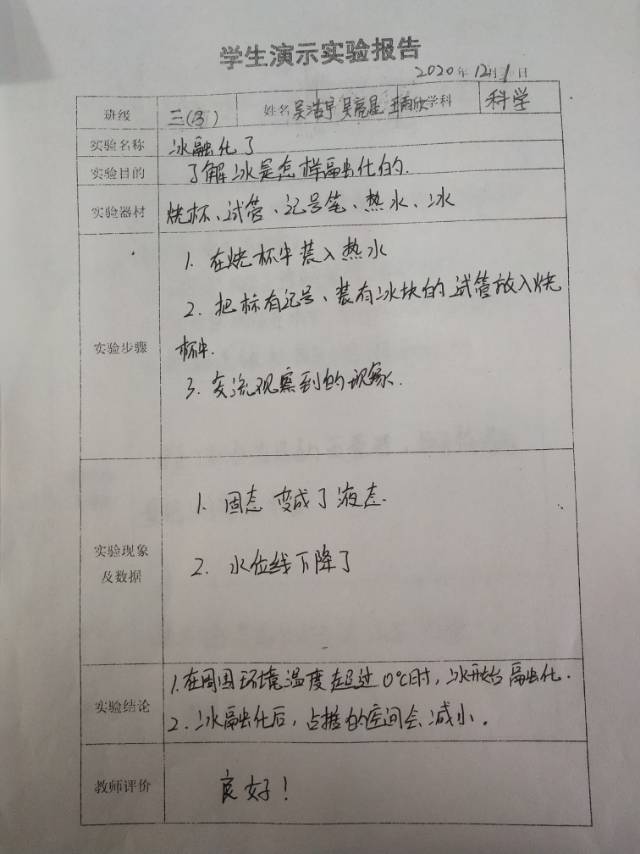 学生演示实验报告
2020年12月1日
班级 三(3) 姓名 吴浩宇 吴亮星 学科 科学
实验名称 冰融化了
实验目的 了解冰是怎样融化的.
实验器材 烧杯、试管、记号笔、热水、冰
1. 在烧杯中装入热水
2. 把标有记号、装有冰块的试管放入烧
实验步骤 杯中.
3. 交流观察到的现象.
1. 固态变成了液态.
实验现象
及数据
2. 水位线下降了
1.在周围环境温度超过0℃时，冰开始融化.
实验结论
2.冰融化后，占据的空间会减小。
教师评价 良好！